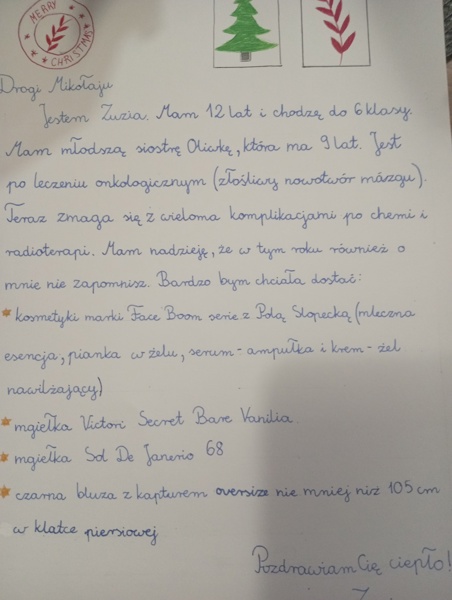 MERRY CHRISTMAS
Drogi Mikołaju
Jestem Zuzia. Mam 12 lat i chodzę do 6 klasy.
Mam młodszą siostrę Oliwkę, która ma 9 lat. Jest
po leczeniu onkologicznym (złośliwy nowotwór mózgu).
Teraz zmaga się z wieloma komplikacjami po chemi i
radioterapi. Mam nadzieję, że w tym roku również o
mnie nie zapomnisz. Bardzo bym chciała dostać:
* kosmetyki marki Face Boom serie z Polą Slopecką (mleczna
esencja, pianka w żelu, serum-ampułka i krem-żel
nawilżający)
* mgiełka Victori Secret Bare Vanilia
* mgiełka Sol De Janerio 68
* czarna bluza z kapturem oversize nie mniej niż 105 cm
w klatce piersiowej
Pozdrawiam Cię ciepło!